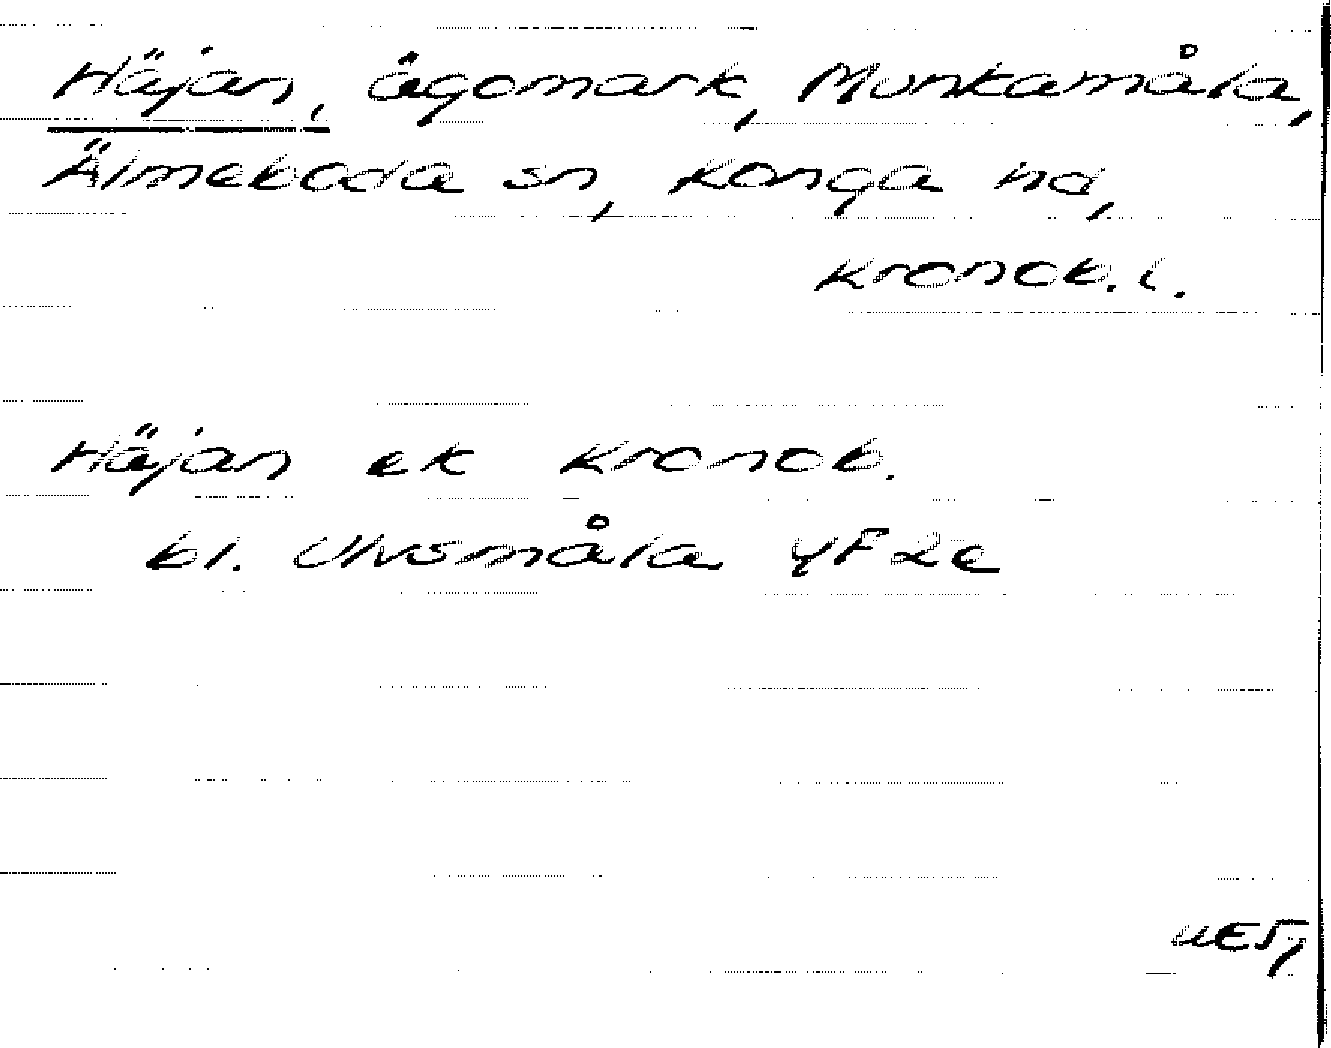 Häjan, ägomark, Munkamåla,
Älmeboda sn, Konga hd,
Kronob. l.
Häjan ek Kronob.
bl. Ulvsmåla 4F2e